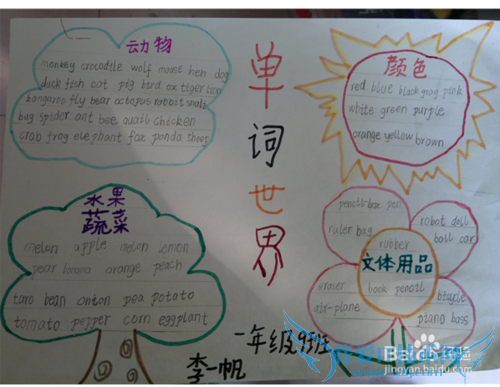 动物
monkey crocodile wolf mouse hen dog
duck fish cat pig bird ox tiger lion
kangaroo fly bear octopus rabbit snail
bug spider ant bee quail chicken
crab frog elephant fox panda
单词世界
颜色
red blue black gray pink
white green purple
orange yellow brown
水果
蔬菜
melon apple melon lemon
pear banana orange peach
taro bean onion pea potato
tomato pepper corn eggplant
pencil-box pen
ruler bag
rubber
robot doll
ball car
文体用品
book pencil
eraser
air-plane
bicycle
piano bass
一年级9班
李一帆
Baidu经验
jingyan.baidu.com